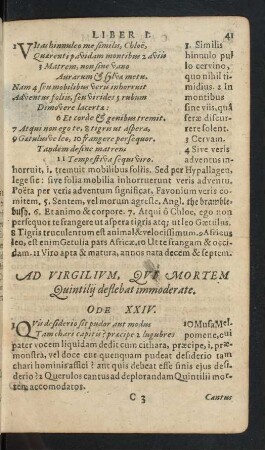 LIBER I.
41
1 Vitas hinnuleo me similis, Chloë,
Quærenti pavidam montibus 2 aviis
3 Matrem, non sine vano
Aurarum & sylvæ metu.
Nam 4 seu mobilibus veris inhorruit
Adventus foliis, seu virides 5 rubum
Dimovere lacertæ:
6 Et corde & genibus tremit.
7 Atqui non ego te, 8 tigris ut aspera,
9 Gætulusve leo, 10 frangere persequor.
Tandem desine matrem
11 Tempestiva sequi viro.
1. Similis
hinnulo pul
lo cervino,
quo nihil ti-
midius. 2 In
montibus
sine viis, quâ
feræ discur-
rere solent.
3 Cervam.
4 Sive veris
adventus in
inhorruit, i. tremuit mobilibus foliis. Sed per Hypallagen,
lege sic: sive folia mobilia inhorruerunt veris adventu.
Poëta per veris adventum significat. Favonium veris co-
mitem. 5. Sentem, vel morum agreste. Angl. the bramble-
bush. 6. Et animo & corpore. 7. Atqui ô Chloe, ego non
persequor te frangere ut aspera tigris atq; ut leo Gætulus.
8 Tigris truculentum est animal & velocissimum. 9 Africus
leo, est enim Getulia pars Africæ. 10 Ut te frangam & occi-
dam. 11 Viro apta & matura, annos nata decem & septem.
AD VIRGILIUM, QUI MORTEM
Quintilij deflebat immoderate.
ODE XXIV.
1 Quis desiderio sit pudor aut modus
Tam chari capitis? præcipe 2 lugubres
1 O Musa Mel-
pomene, cui
pater vocem liquidam dedit cum cithara, præcipe, i, præ-
monstra, vel doce quem quam pudeat desiderio tam
chari hominis affici? aut quis debeat esse finis ejus desi-
derio? 2 Querulos cantus ad deplorandam Quintilii mor-
tem accomodatos.
C 3
Cantus